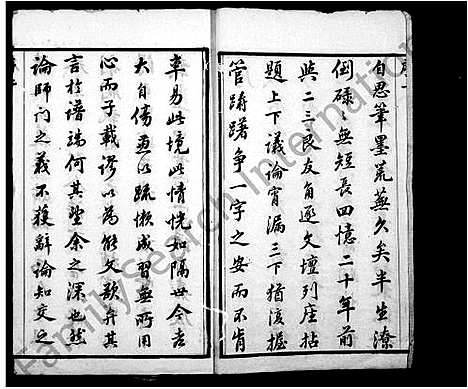 自忍筆墨荒蕪久矣半生潦
倒碌〻無短長回憶二十年前
與二三良友角逐文壇列座拈
題上下議論宵漏三下猶復握
管躊躇爭一字之安而不肯
率易此境此情恍如隔世今老
大自傷更以疏懶成習無所用
心而子載謬以為能文欲弁其
言於譜端何其望余之深也然
論師門之義不獲辭論知交之
FamilySearch International